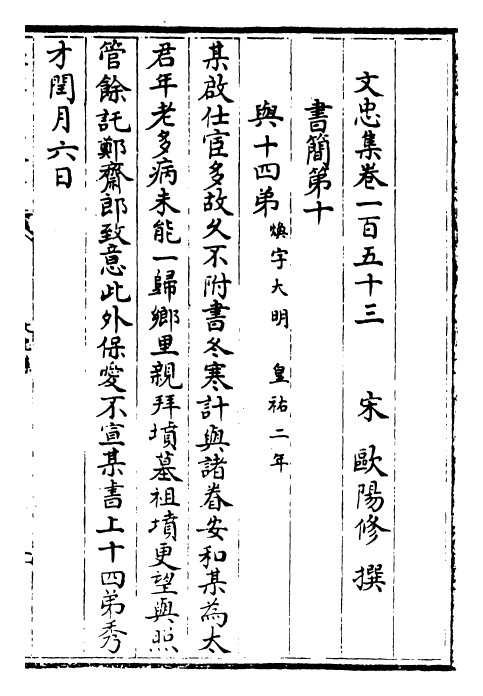 文忠集卷一百五十三 宋 歐陽修 撰
書簡第十
與十四弟 煥字大明 皇祐二年
某啟仕宦多故久不附書冬寒計與諸眷安和某為太
君年老多病未能一歸鄉里親拜墳墓祖墳更望與照
管餘託鄭齋郎致意此外保愛不宣某書上十四弟秀
才閏月六日